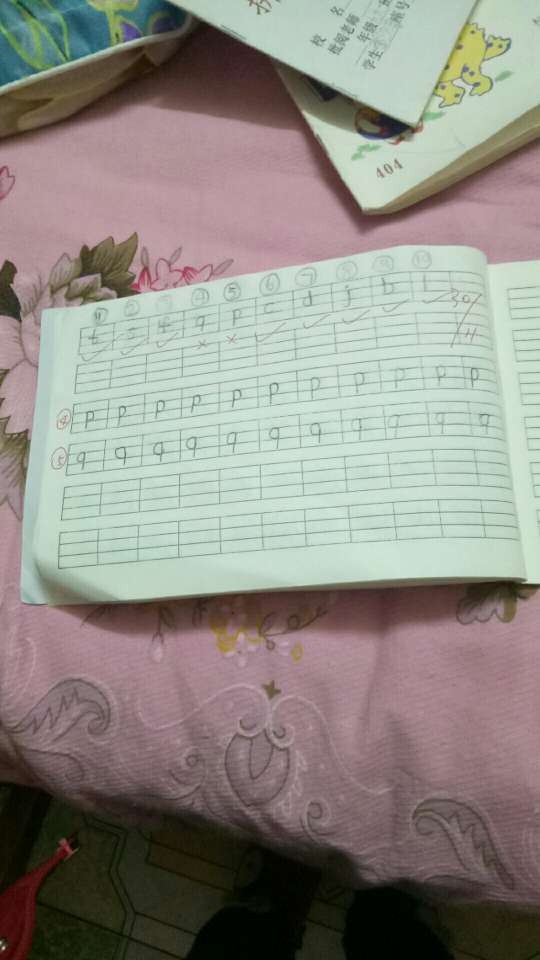 校 名
批阅老师
学生 年级 班号
404
① ② ③ ④ ⑤ ⑥ ⑦ ⑧ ⑨ ⑩
t s f q p c d j b l
30/11
④ p p p p p p p p p p p
⑤ q q q q q q q q q q q